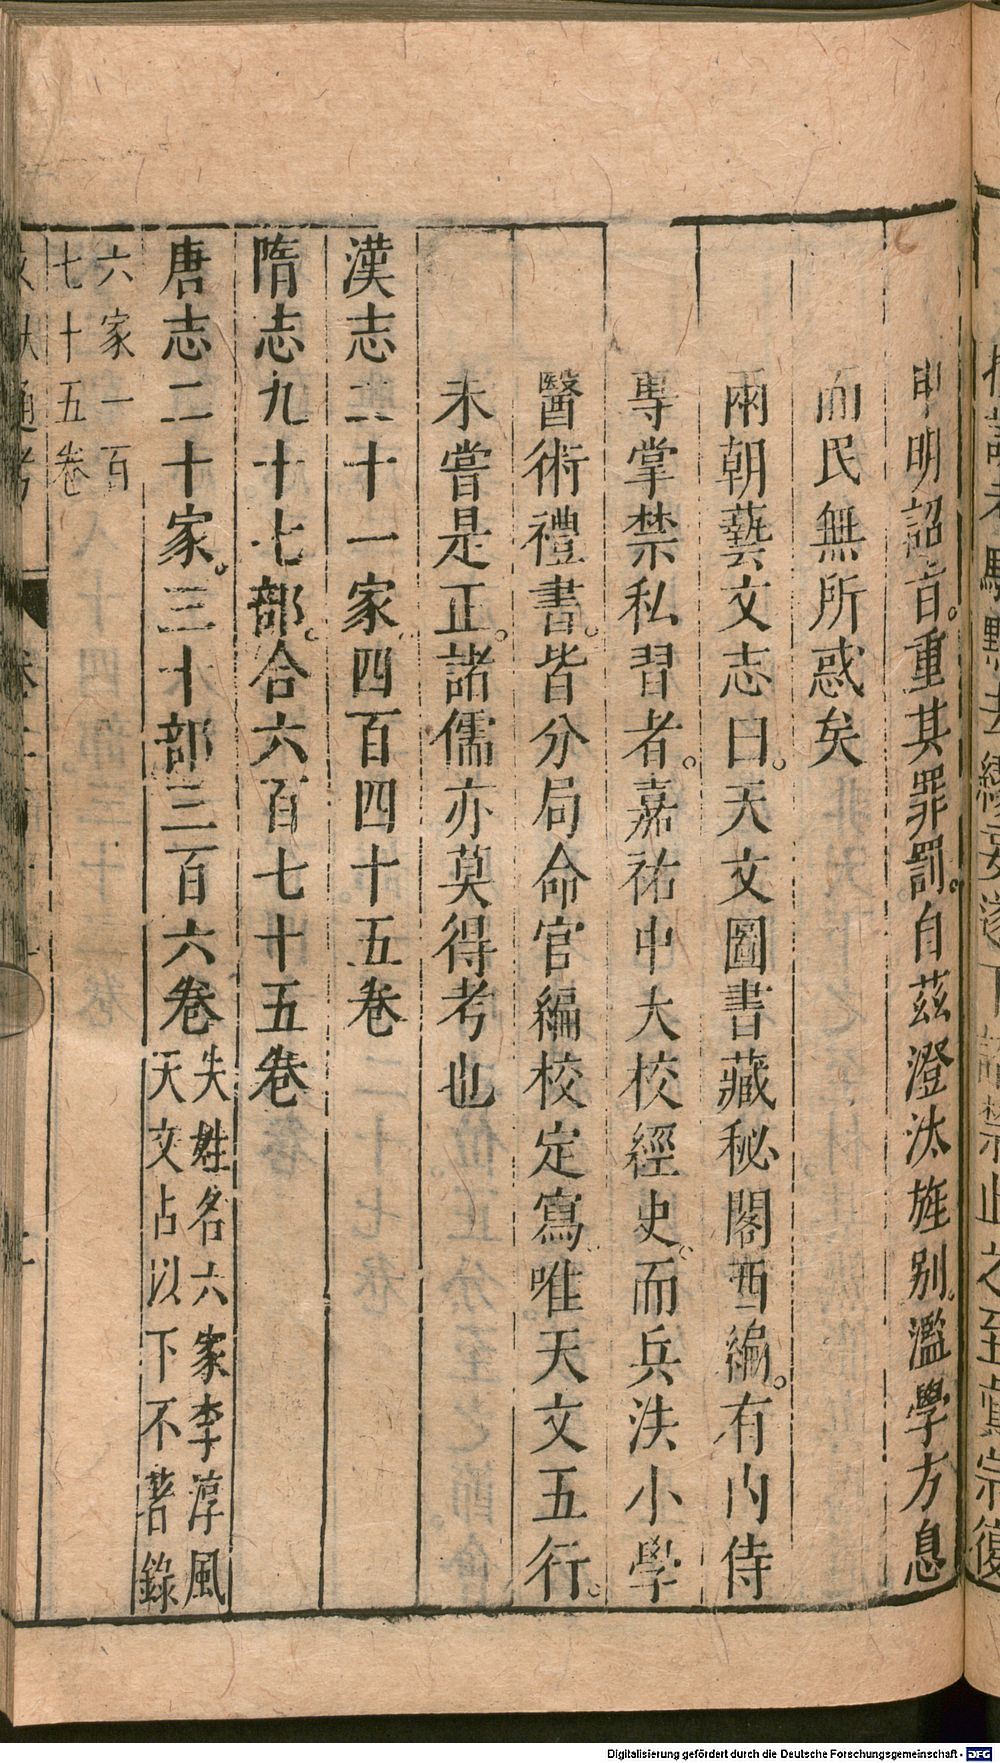 申明詔旨。重其罪罰。自茲澄汰旌别。濫學方息
而民無所惑矣
兩朝藝文志曰。天文圖書藏秘閣西編。有内侍
專掌禁私習者。嘉祐中大校經史。而兵法小學
醫術禮書。皆分局命官編校定寫。唯天文五行。
未嘗是正。諸儒亦莫得考也
漢志二十一家。四百四十五卷
隋志九十七部。合六百七十五卷
唐志二十家。三十部三百六卷失姓名六家李淳風
天文占以下不著錄
六家一百
七十五卷
Digitalisierung gefördert durch die Deutsche Forschungsgemeinschaft - DFG